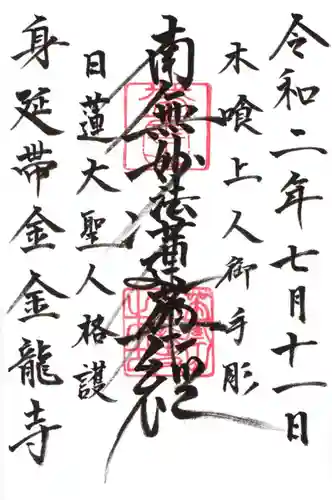 令和二年七月十一日
木喰上人御手彫
南無妙法蓮華経
日蓮大聖人格護
身延帯金金龍寺